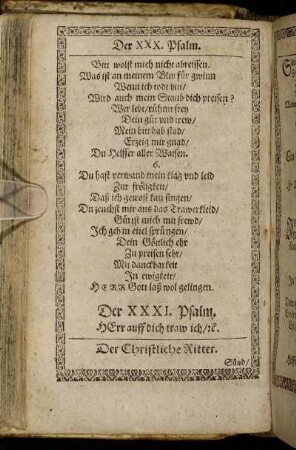 Der XXX. Psalm.
Vnd wolst mich nicht abreissen.
Was ist an meinem Blut für gwinn
Wenn ich todt bin/
Wird auch mein Staub dich preisen?
Wer lebt/ rühmt frey
Dein güt vnd trew/
Mein bitt hab stad/
Erzeig mir gnad/
Du Helffer aller Waisen.
6.
Du hast verwand mein klag vnd leid
Zur fröligkeit/
Daß ich getrost kan singen/
Du zeuchst mir aus das Trawerkleid/
Gürtst mich mit frewd/
Ich geh in eitel sprüngen/
Dein Götlich ehr
Zu preisen sehr/
Mit danckbarkeit
In ewigkeit/
HERR Gott laß wol gelingen.
Der XXXI. Psalm.
HErr auff dich traw ich/ ꝛc.
Der Christliche Ritter.
Sünd/